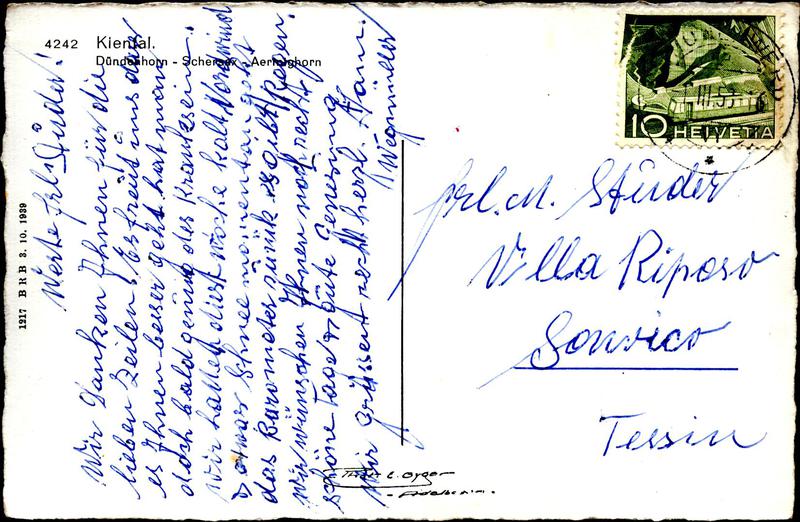 4242 Kiental.
Dündenhorn - Schersax - Aermighorn
1217 BRB 3. 10. 1939
Werte Frl. Studer!
Wir Danken Ihnen für die
lieben Zeilen. Es freut uns das
es Ihnen besser geht hat man
doch bald genug des Krankseins.
Wir hatten diese Woche kalt Vorwind
u etwas Schnee momentan geht
das Barometer zurük es gibt Regen.
Wir wünschen Ihnen noch recht
schöne Tage u. gute Genesung
Wir grüssen recht herzl. Fam.
HELVETIA
10
III.53
Frl. M. Studer
Villa Riposo
Sonvico
Tessin
Gyger
Adelboden.